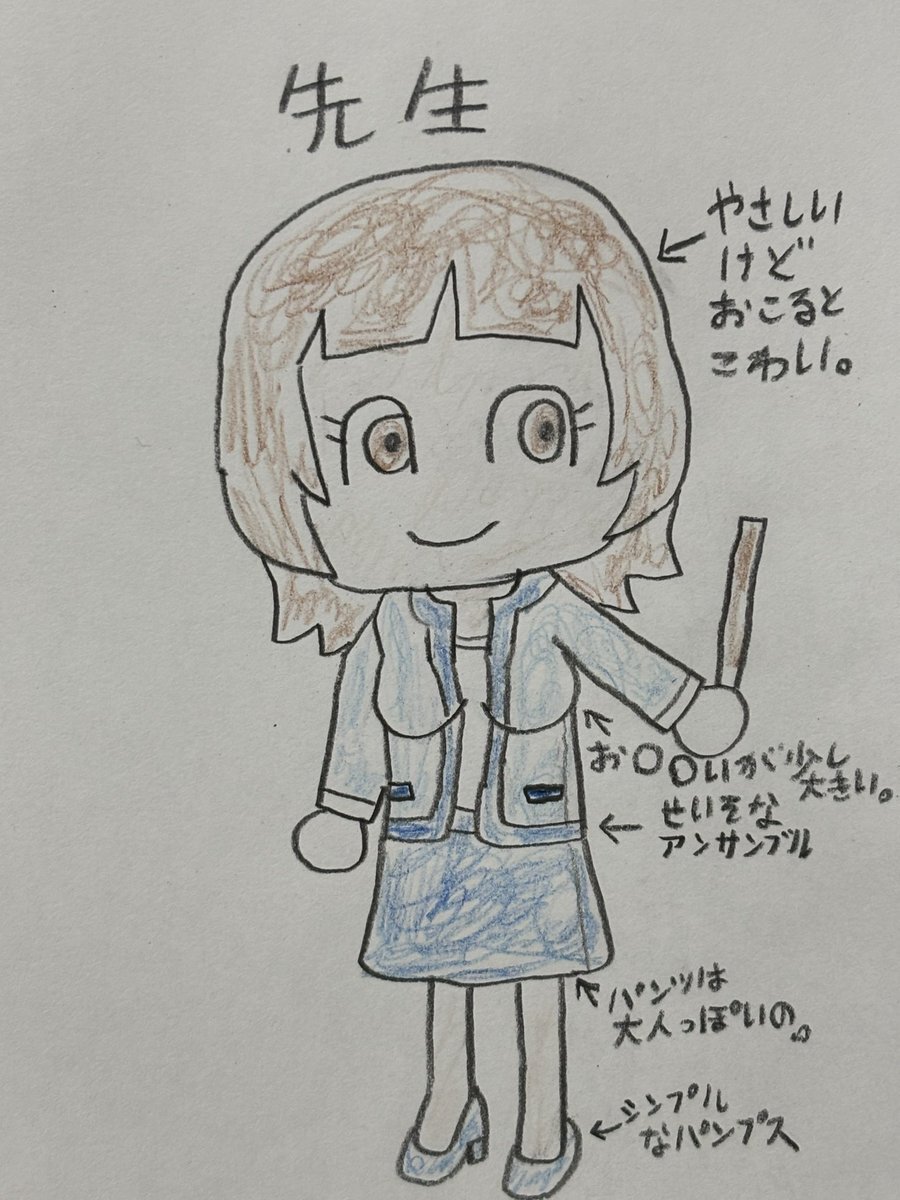 先生
やさしい
けど
おこると
こわい。
お〇〇いが少し
大きい。
せいそな
アンサンブル
パンツは
大人っぽいの。
シンプル
なパンプス